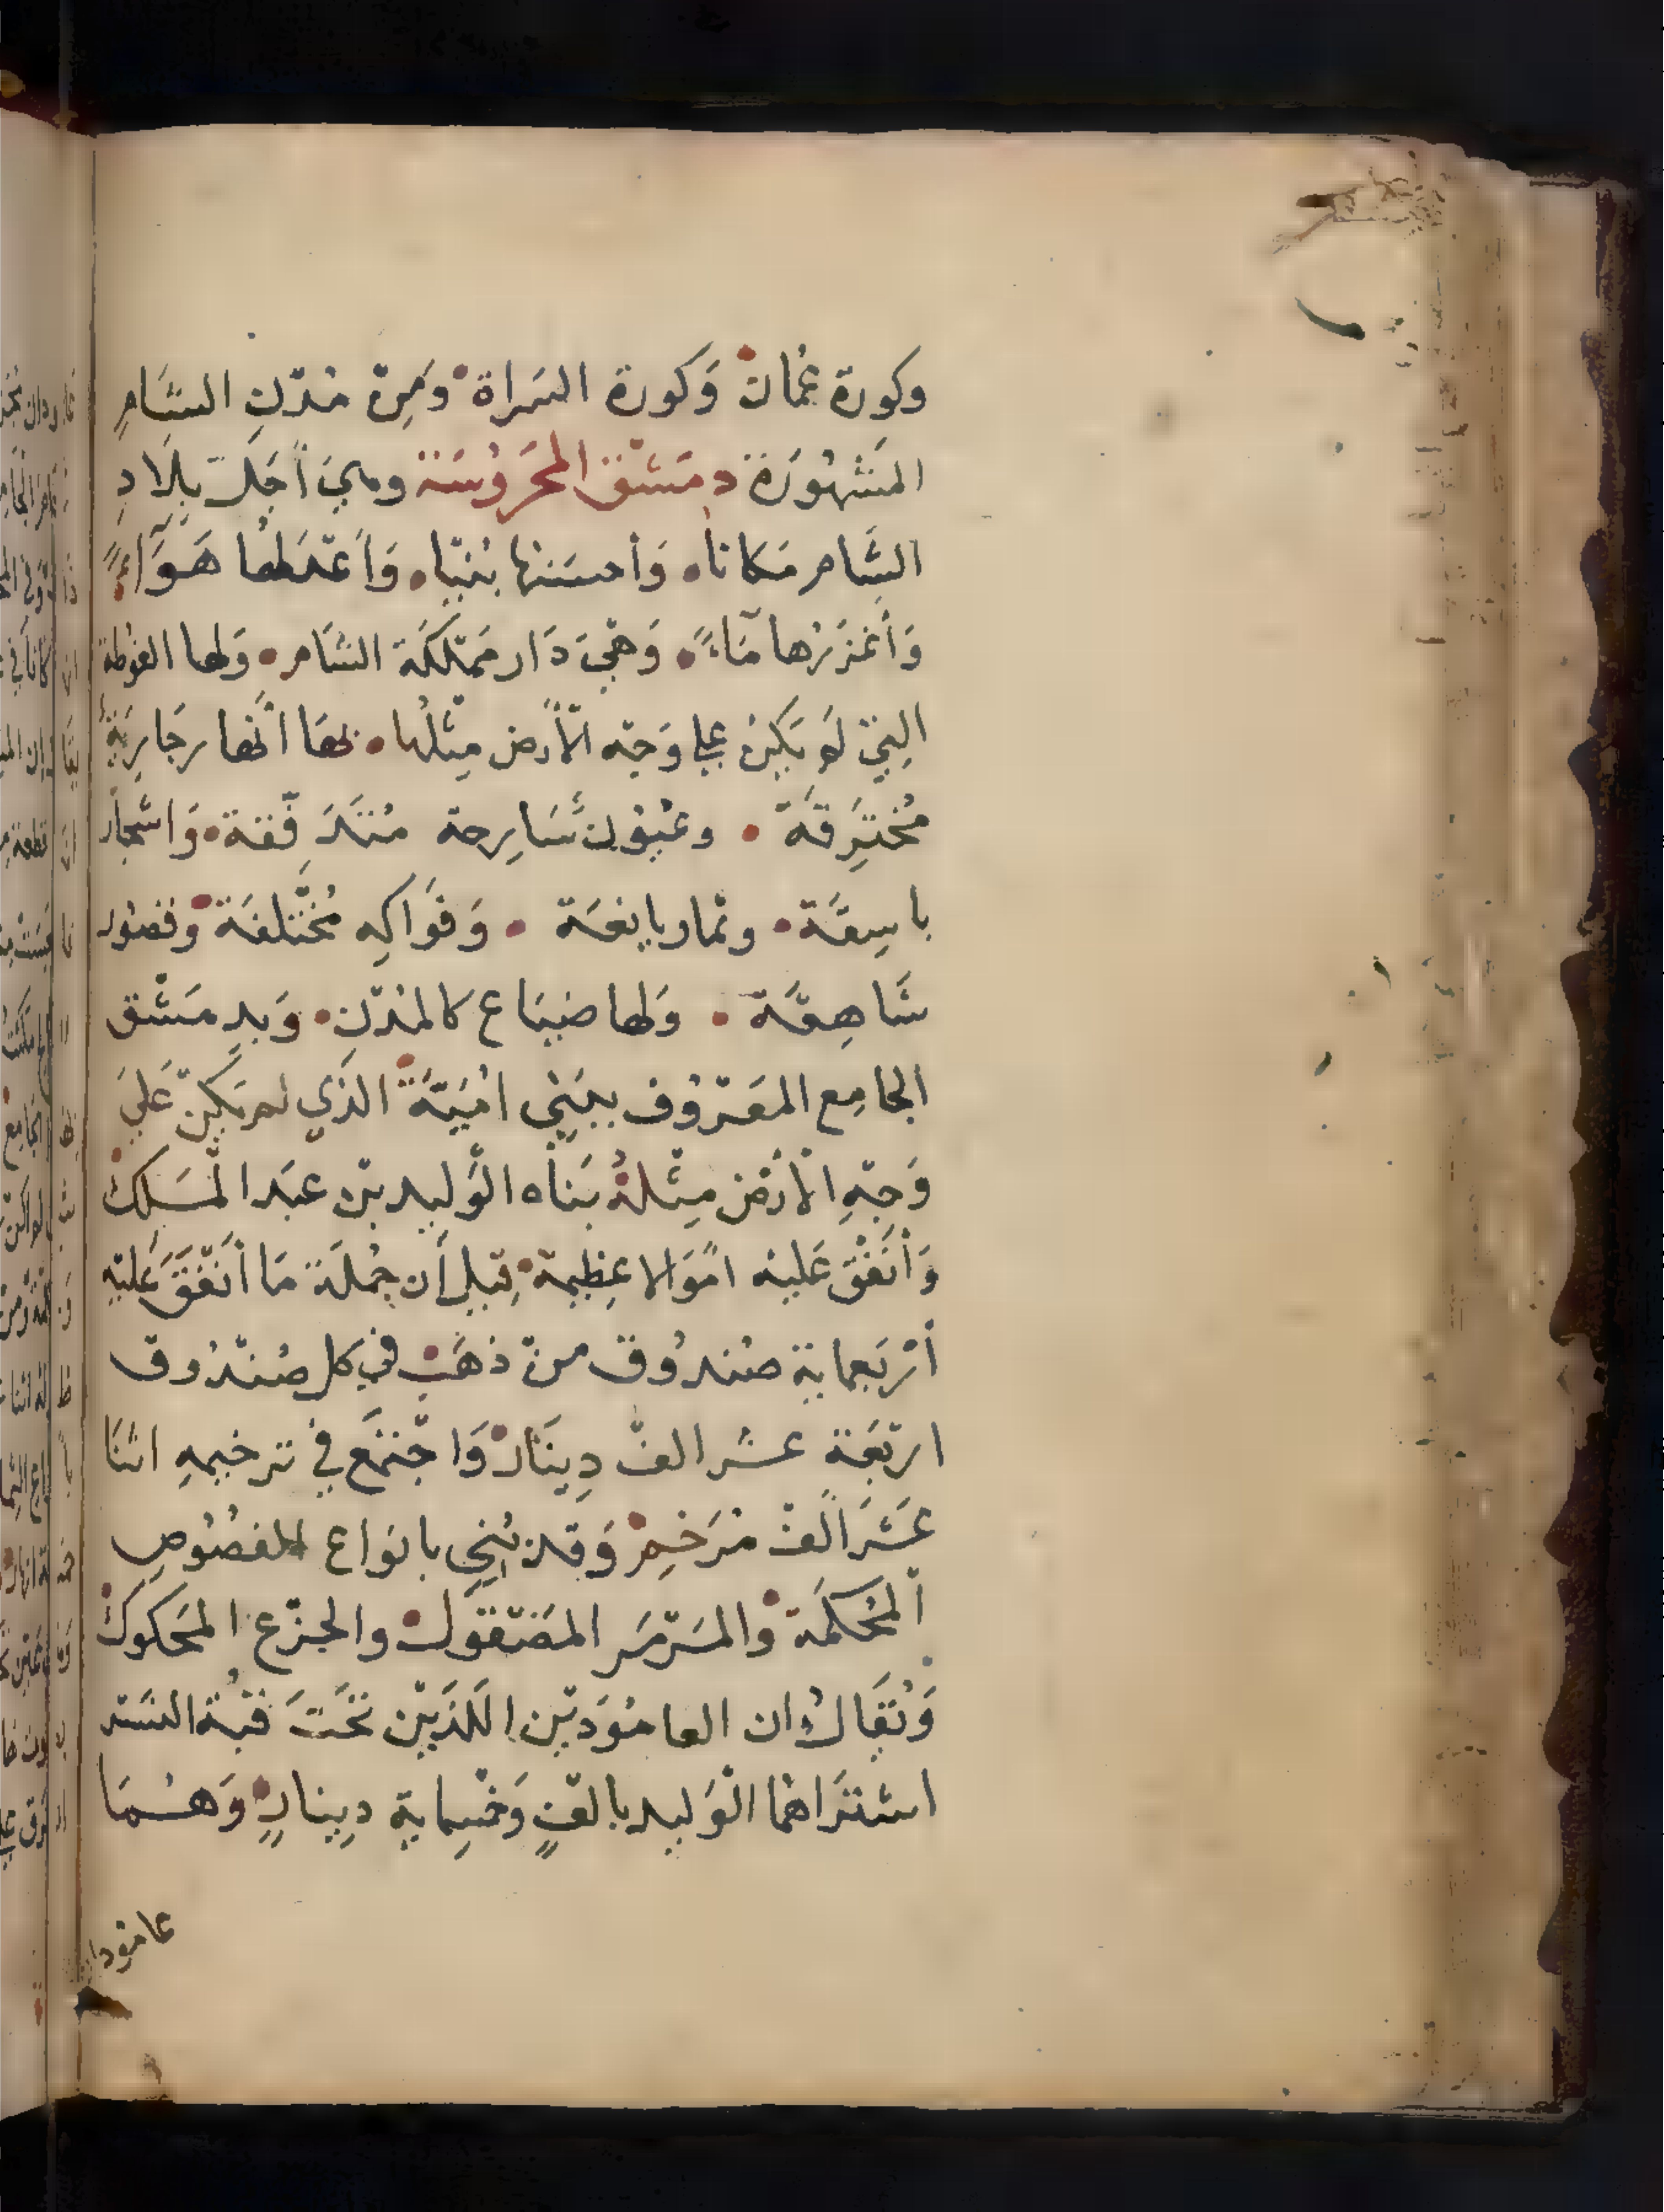 وكورة عُمان وَكورة السَراة وَمِنْ مُدْنِ الشَامِ
المَشْهُورَة دِمَشْق المَحرُوسَة وهي أجَلّ بِلَادِ
الشَام مَكانا وَأحسَنها بُنْيًا وَأَعْدَلها هَوَاءً
وَأَغْزَرُها مَاءً وَهْيَ دَار مَمْلَكَة الشَام وَلها الغوْطة
التِيْ لَم يَكُنْ على وَجْه الْأرض مِثْلُها بهَا أنْهار جَارِيَةٌ
مُختَرِقَة وعُيُون سَارِحة مُتَدَفِّقة وَاشجار
باسِقَة وثمار يانعَة وَفَواكِه مُخْتَلفَة وقصُور
شَاهِقَة وَلها ضِيَاع كالمُدْنِ وَبدِمَشْق
الجامِع المَعْرُوف ببَنِي امَيَّة الذَي لم يَكُنْ عَلىَ
وَجْهِ الأرْض مِثْلهُ بَناه الْوَليد بْن عَبد المَلِك
وَأنفَق عَليْه امْوَالا عظِيمة قِيل أن جُملَة مَا أنْفَقَ عَليْهِ
أرْبَعماية صُندُوق منْ ذهَب في كل صُنْدُوق
ارْبَعَة عشر الفْ دِينَار وَاجْتمَع فيْ ترخيمهِ اثنَا
عَشرَ الفْ مُرَخِم وَقد بُنِي بانوَاع الفصُوصِ
ألمُحكَمَة وَالمَرْمَر المَصْقوَل والجزْع المَحكوك
وَيُقَالُ ان العامُوَديْن اللَذَيْن تحَتَ قبْة النَسْر
اشتَرَاهمُا الْوَليد بالفٍ وَخمْسماية دِينارٍ وَهُمَا
عامودا